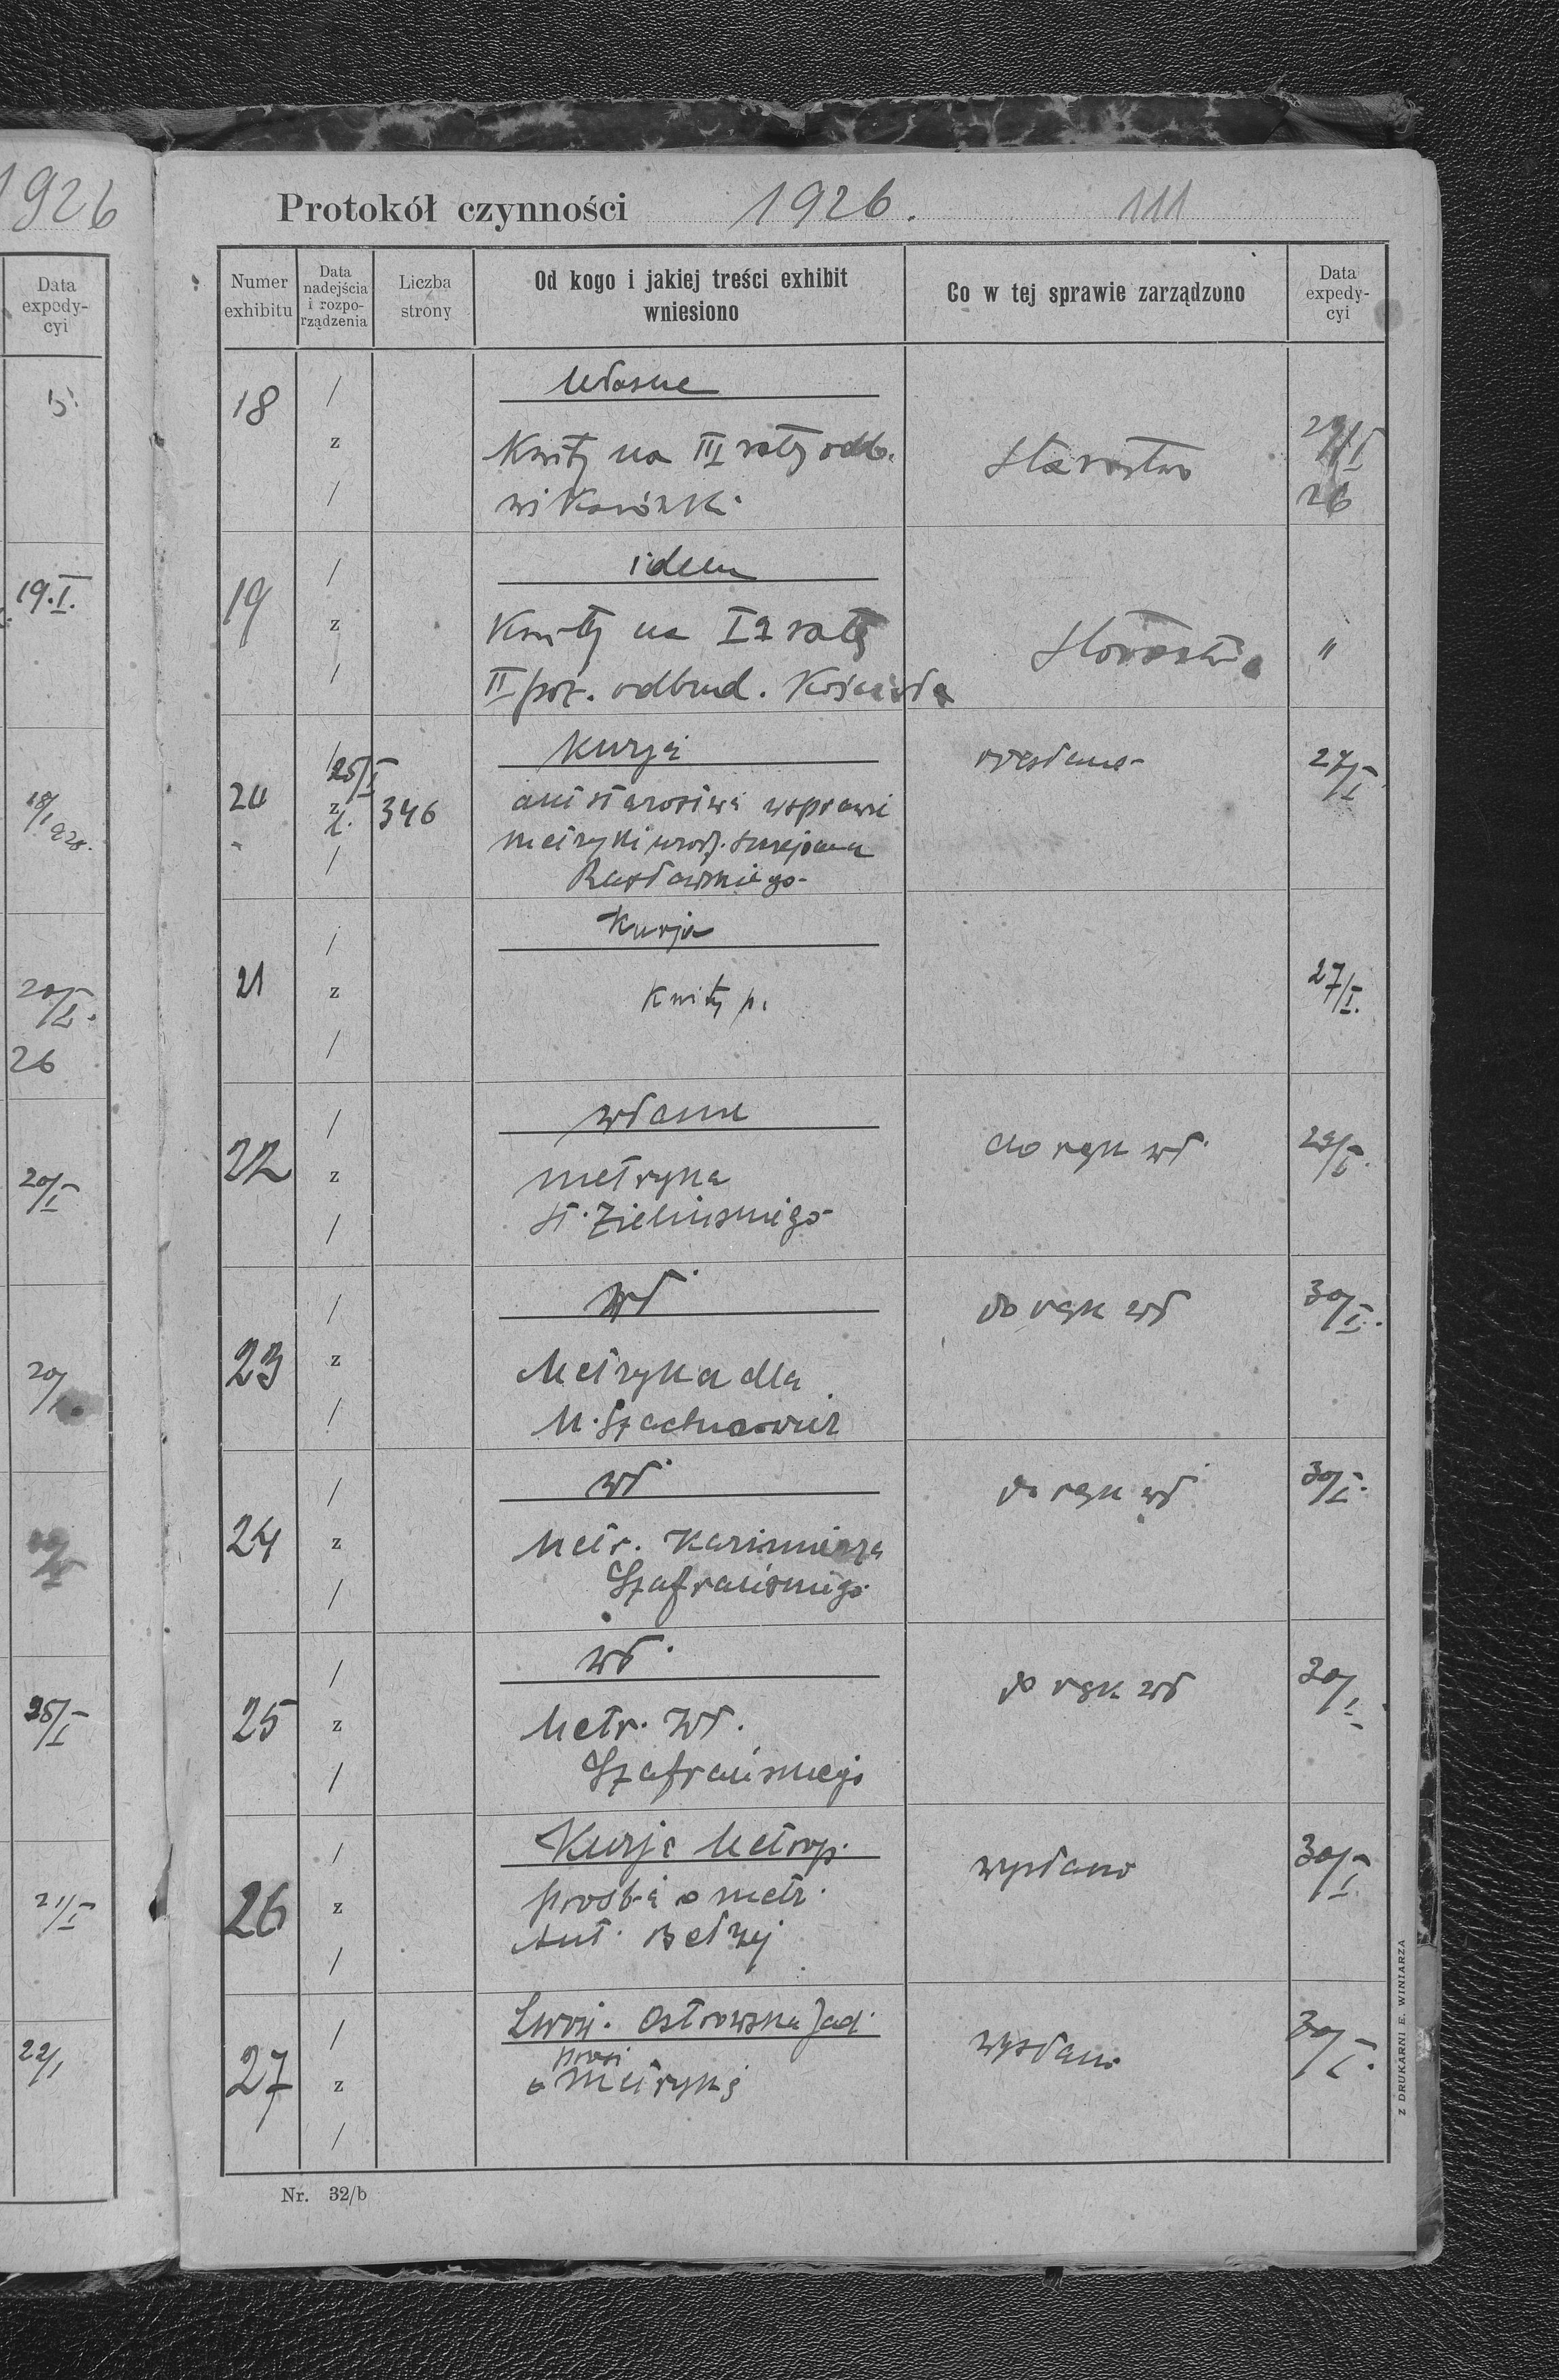 1926
Data
expedy-
cyi
19.I.
18/I 926.
20/I.
26
20/I
20/I
25/I
21/I
22/I
Protokół czynności 1926. 111
Numer
exhibitu
Data
nadejścia
i rozpo-
rządzenia
Liczba
strony
Od kogo i jakiej treści exhibit
wniesiono
Co w tej sprawie zarządzono
Data
expedy-
cyi
18
/
z
/
Własne
Kwity na III raty odb.
wikarówki
Starostwo
26
19
/
z
/
idem
Kwity na I raty
II poż. odbud. Kościoła
Starostwo
"
20
/
25/I
z
/
346
Kurja
metryki urodz.
27/I
21
/
z
/
Kurja
Kwity p.
27/I.
22
/
z
/
własne
metryka
St. Zielińskiego
do rąk wł.
29/I.
23
/
z
/
wł.
Metryka dla
M. Szachnowicz
do rąk wł
30/I.
24
/
z
/
wł.
Metr. Kazimierza
Szafrańskiego
do rąk wł
30/I.
25
/
z
/
wł.
Metr. Wł.
Szafrańskiego
do rąk wł
30/I
26
/
z
/
Kurja Metrop.
prośba o metr.
Ant. Bełzej
wysłano
30/I
27
/
z
/
Lwów. Ostrowska Jad.
prosi
o metrykę
wysłano
30/I.
Nr. 32/b
Z DRUKARNI E. WINIARZA